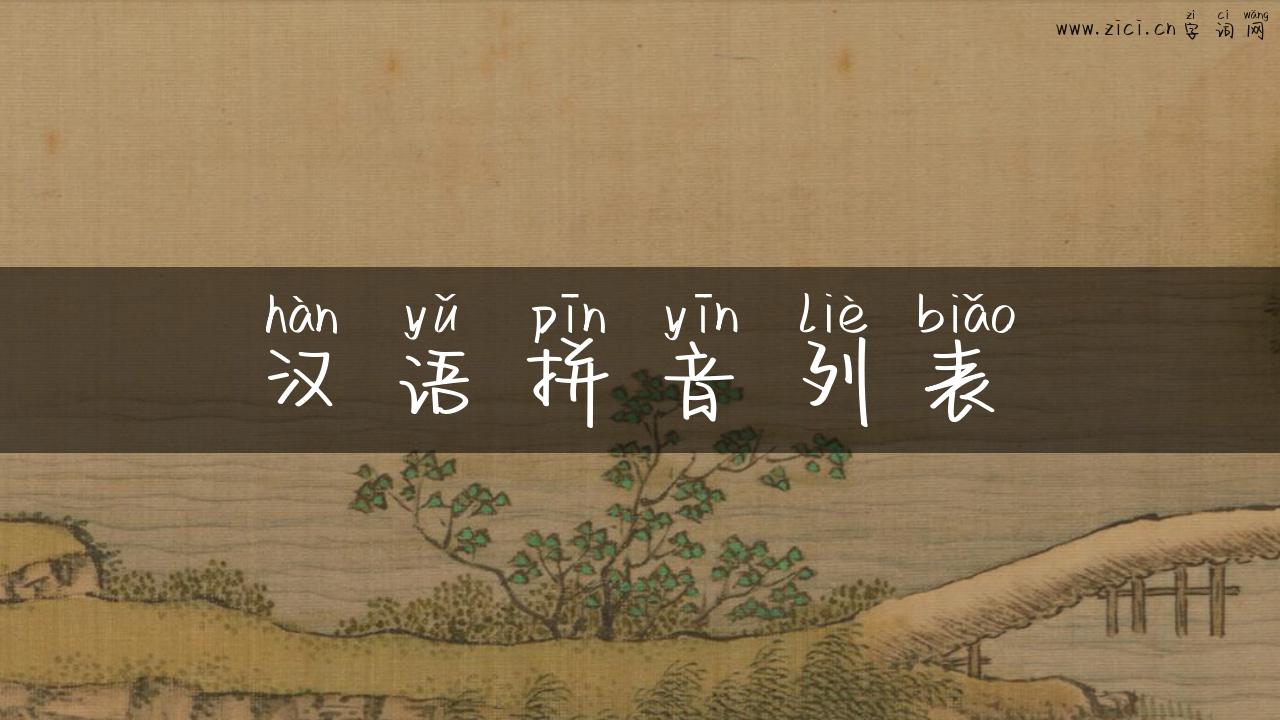 zì cí wǎng
www.zici.cn 字词网
hàn yǔ pīn yīn liè biǎo
汉语拼音列表